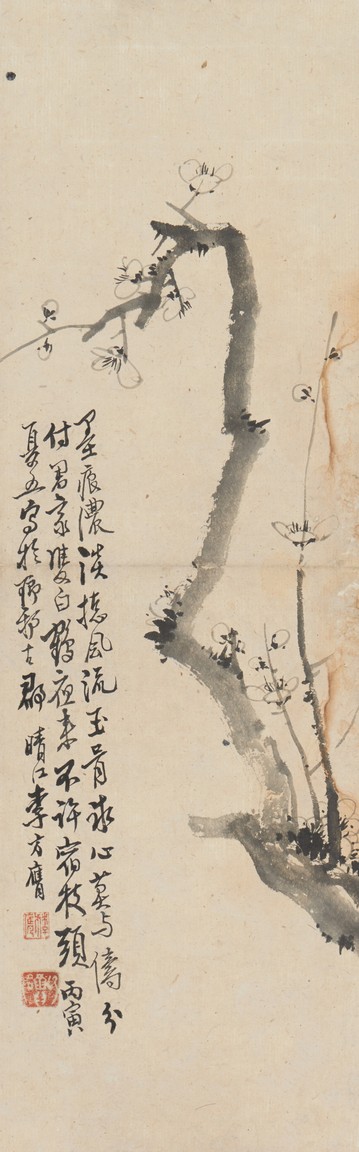 墨痕濃淡揔風流玉骨冰心莫与儔分
付君家雙白鶴夜來不許宿枝頭丙寅
夏五寫於瑯琊古郡晴江李方膺